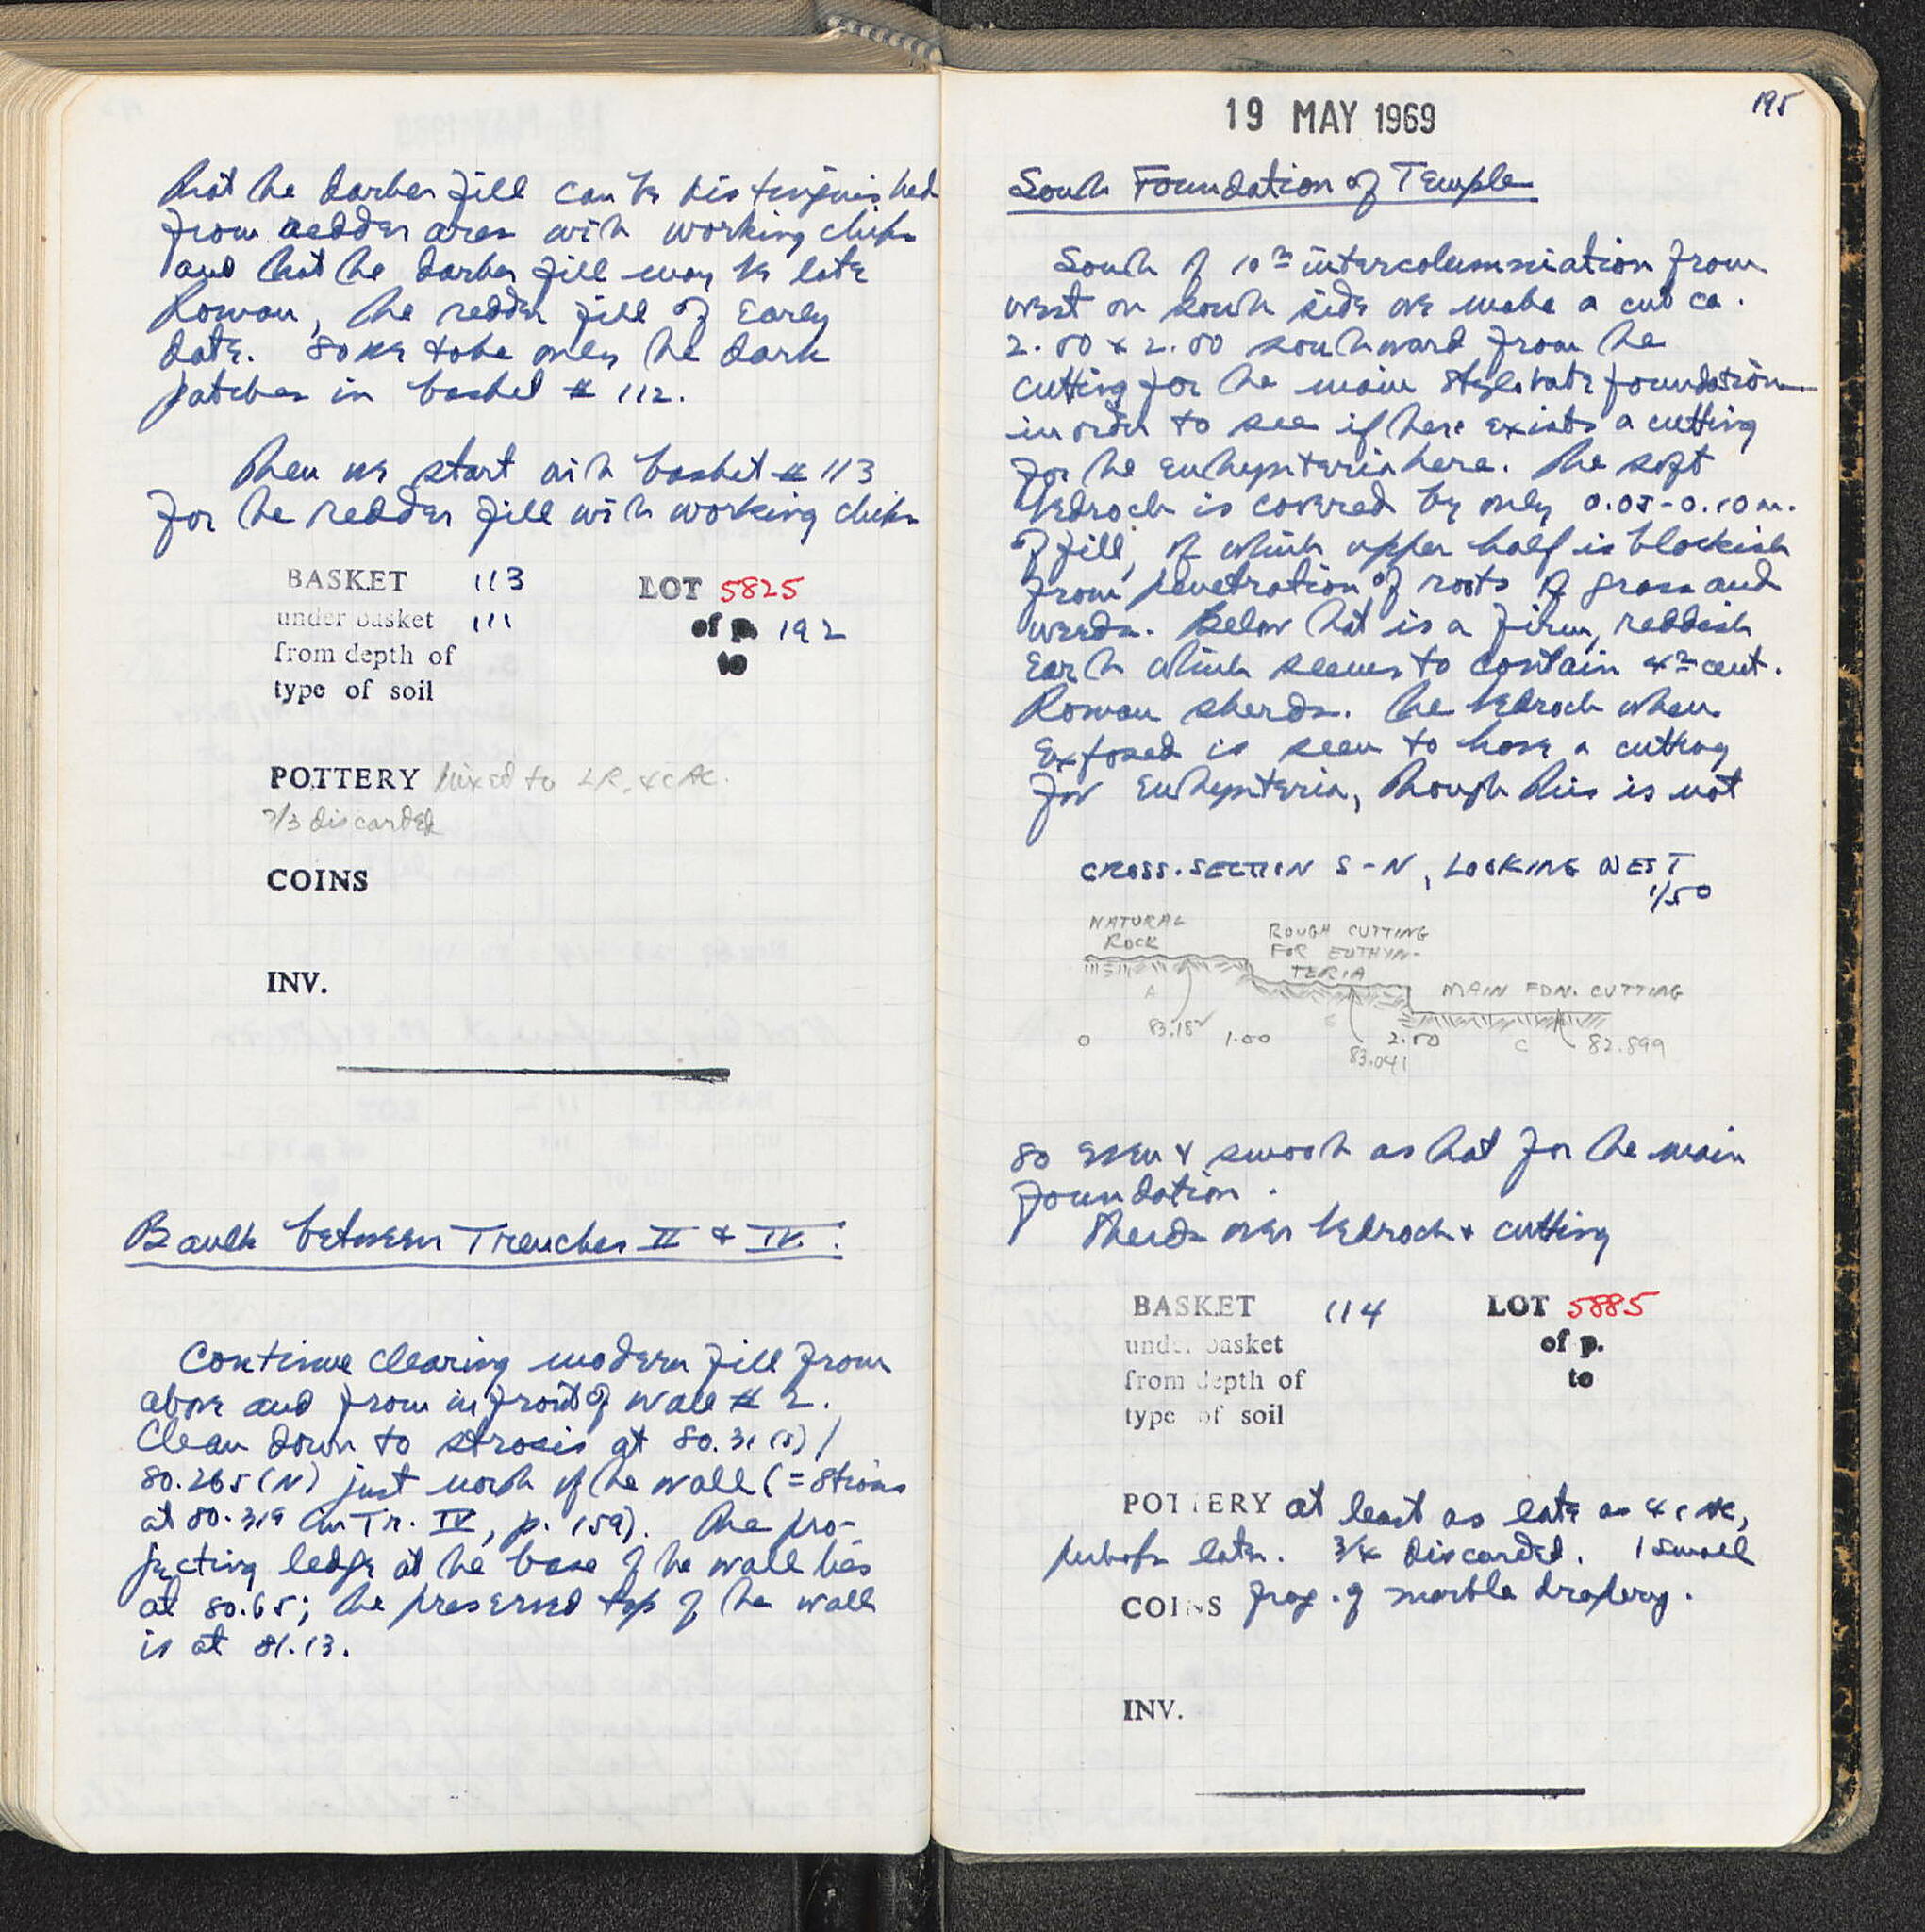 that the darker fill can be distinguished
from redder area with working chips
and that the darker fill may be late
Roman, the redder fill of early
date. So we take only the dark
patches in basket # 112.
Then we start with basket # 113
for the redder fill with working chips
BASKET 113 LOT 5825
under basket 111 of p. 192
from depth of to
type of soil
POTTERY Mixed to LR, 4c AC.
2/3 discarded
COINS
INV.
Baulk between Trenches II & IV:
Continue clearing modern fill from
above and from in front of wall # 2.
Clean down to strosis at 80.31 (S) /
80.265 (N) just north of the wall (= strosis
at 80.319 in Tr. IV, p. 159). The pro-
jecting ledge at the base of the wall lies
at 80.65; the preserved top of the wall
is at 81.13.
19 MAY 1969
195
South Foundation of Temple
South of 10th intercolumniation from
west on south side we make a cut ca.
2.00 x 2.00 southward from the
cutting for the main stylobate foundation
in order to see if there exists a cutting
for the euthynteria here. The soft
bedrock is covered by only 0.05-0.10 m.
of fill, of which upper half is blackish
from penetration of roots of grass and
weeds. Below that is a firm, reddish
earth which seems to contain 4th cent.
Roman sherds. The bedrock when
exposed is seen to have a cutting
for euthynteria, though this is not
CROSS-SECTION S-N, LOOKING WEST
1/50
NATURAL
ROCK
ROUGH CUTTING
FOR EUTHYN-
TERIA
MAIN FDN. CUTTING
A
83.18
0 1.00 2.00 C 82.899
83.041
so even & smooth as that for the main
foundation.
Sherds over bedrock & cutting
BASKET 114 LOT 5885
under basket of p.
from depth of to
type of soil
POTTERY at least as late as 4c AC,
perhaps later. 3/4 discarded. 1 small
COINS frag. of marble drapery.
INV.